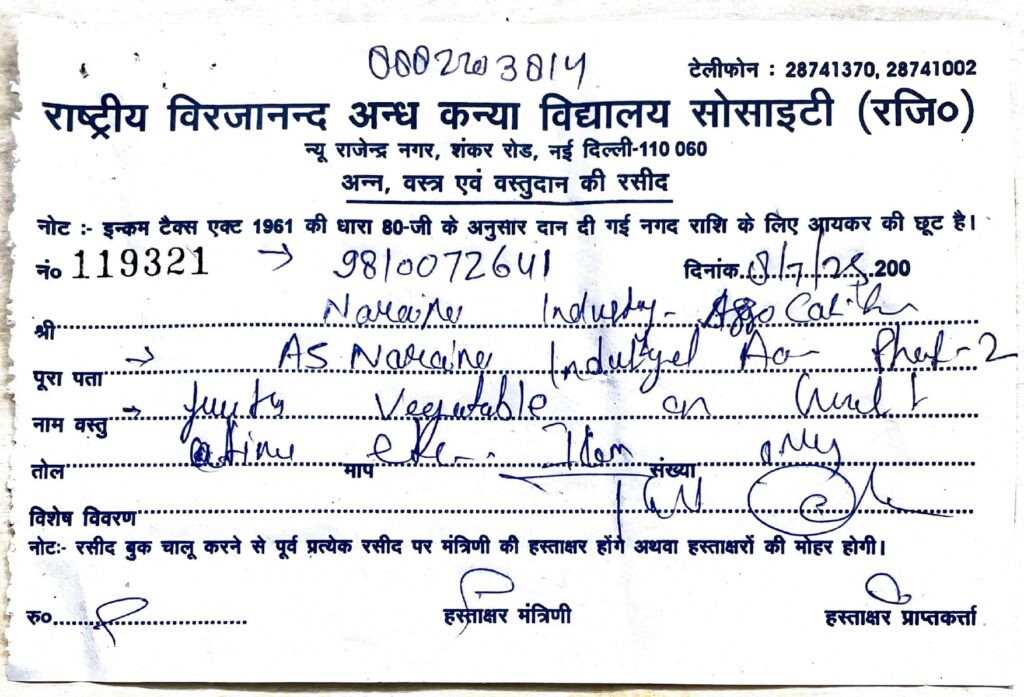 टेलीफोन : 28741370, 28741002
राष्ट्रीय विरजानन्द अन्ध कन्या विद्यालय सोसाइटी (रजि०)
न्यू राजेन्द्र नगर, शंकर रोड, नई दिल्ली-110 060
अन्न, वस्त्र एवं वस्तुदान की रसीद
नोट :- इन्कम टैक्स एक्ट 1961 की धारा 80-जी के अनुसार दान दी गई नगद राशि के लिए आयकर की छूट है।
नं० 119321 → 9810072641 दिनांक 200
श्री Naraina Industry
पूरा पता → AS Naraina Phas-2
नाम वस्तु → Vegetable
तोल माप Item संख्या only
विशेष विवरण
नोटः- रसीद बुक चालू करने से पूर्व प्रत्येक रसीद पर मंत्रिणी की हस्ताक्षर होंगे अथवा हस्ताक्षरों की मोहर होगी।
रु० हस्ताक्षर मंत्रिणी हस्ताक्षर प्राप्तकर्त्ता